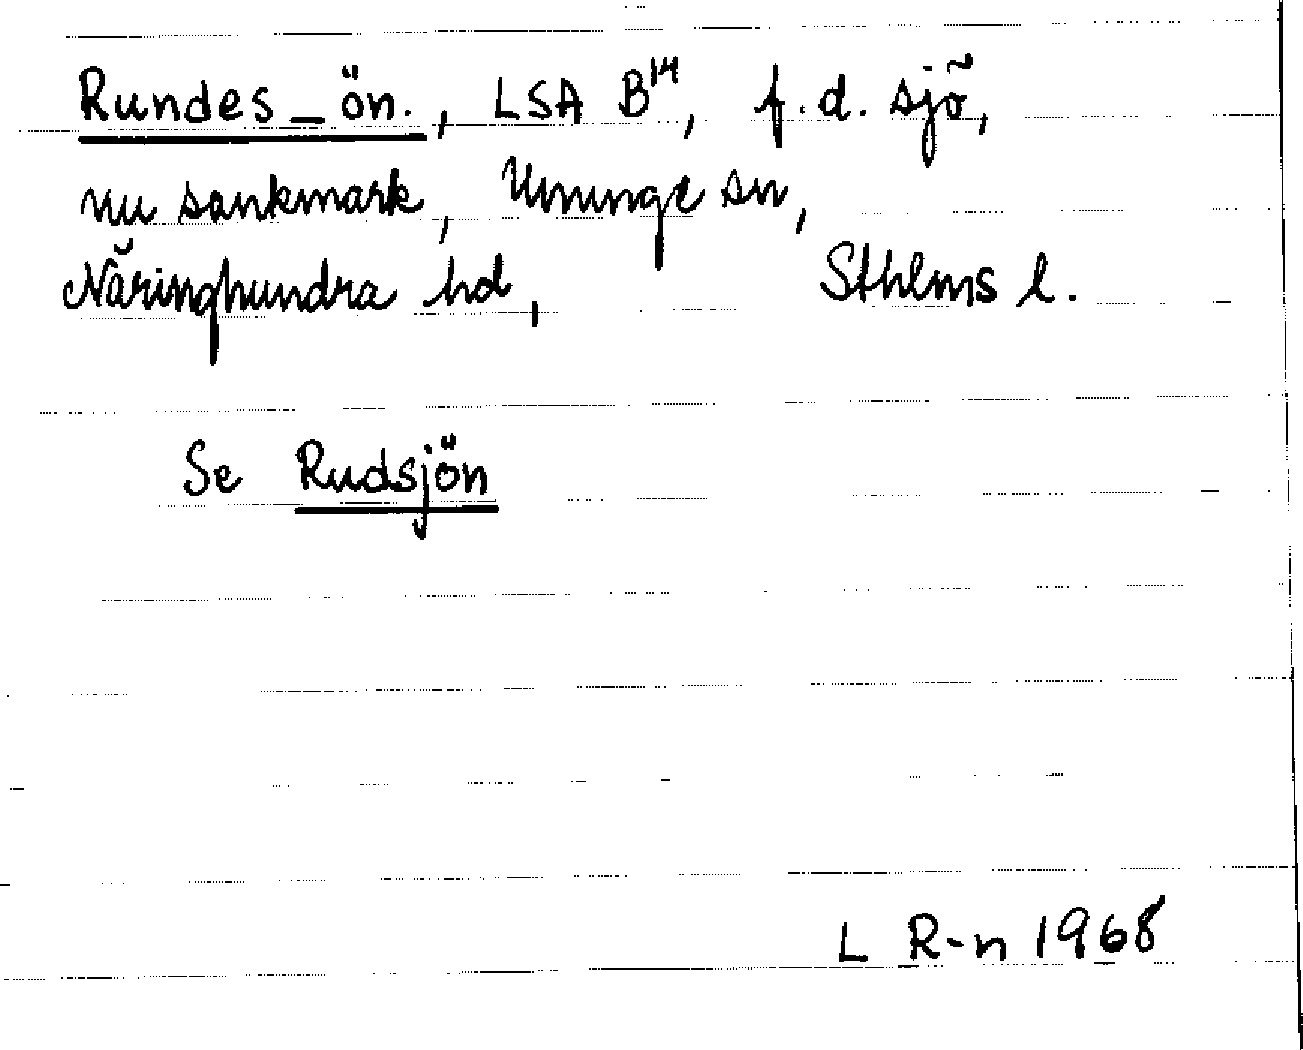 Rundes_ön., LSA B¹⁴, f.d. sjö,
nu sankmark, Ununge sn,
Närdinghundra hd, Sthlms l.
Se Rudsjön
L R-n 1968